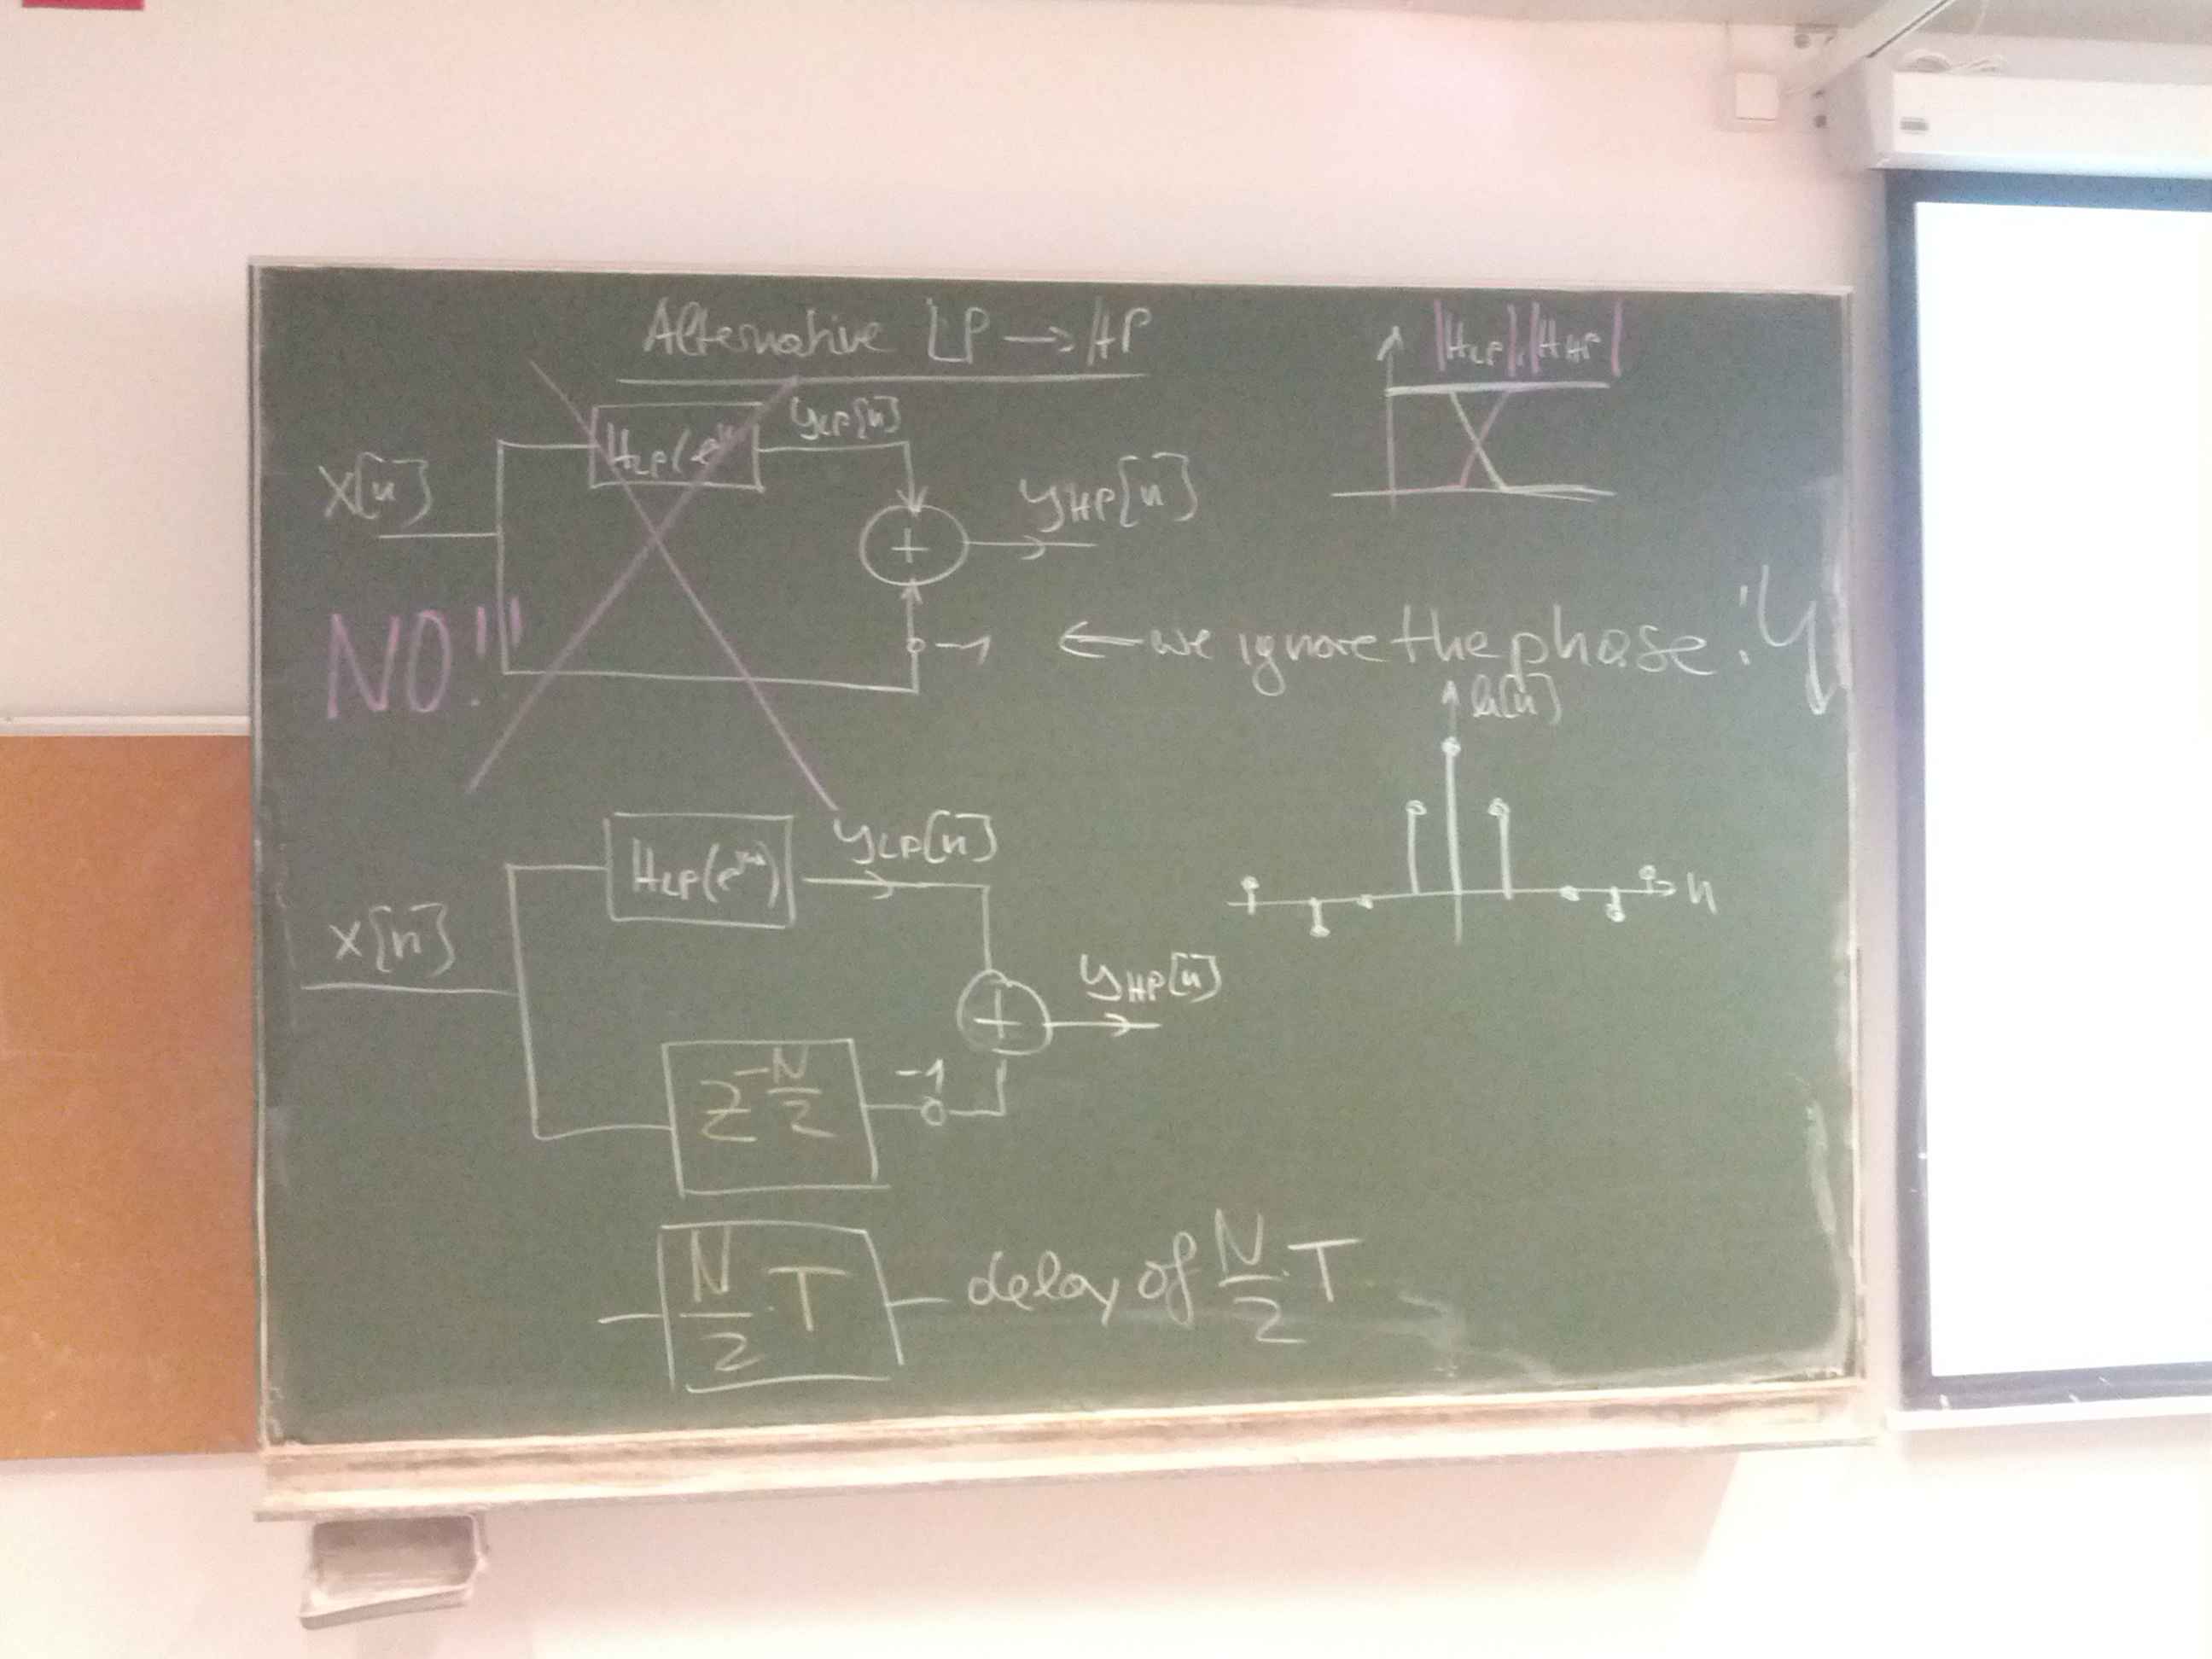 Alternative LP → HP
|H_LP|, |H_HP|
H_LP(e
y_LP[n]
x[n]
+
y_HP[n]
NO!!!
-1
← we ignore the phase!
h[n]
n
H_LP(e^jω)
y_LP[n]
x[n]
+
y_HP[n]
z^-N/2
-1
N/2 T
delay of N/2 · T